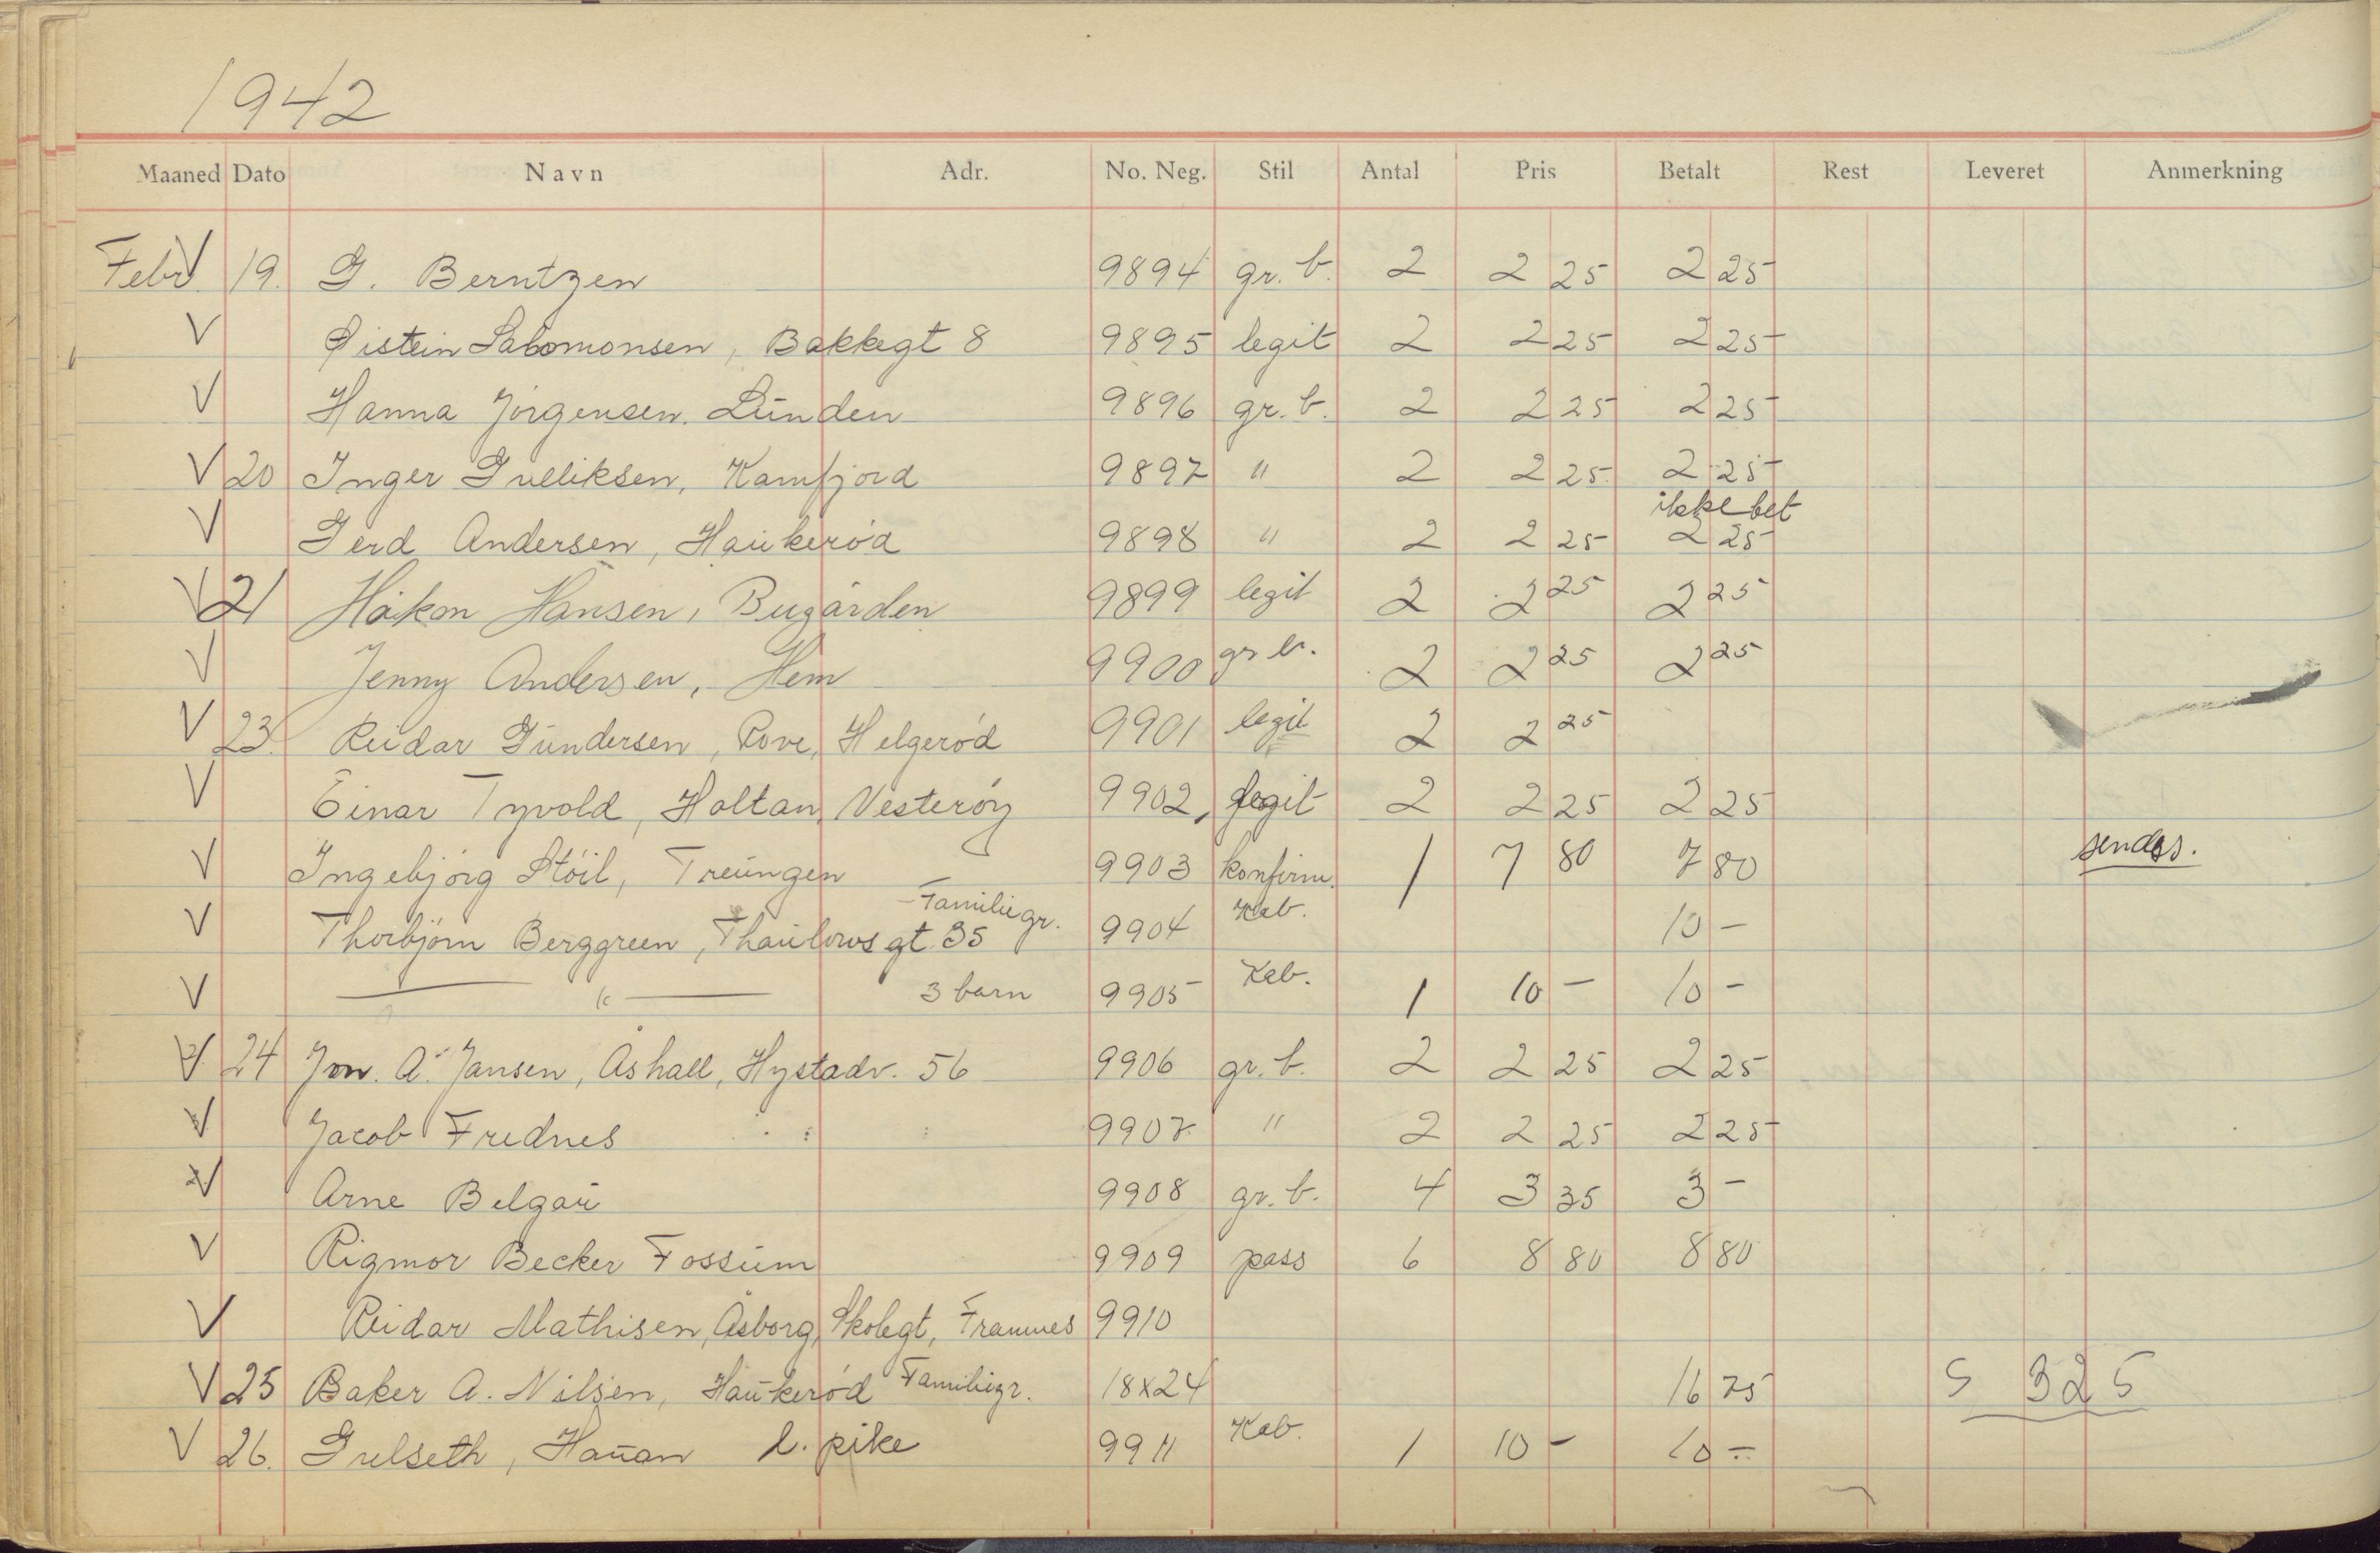 1942
Maaned Dato Navn Adr. No. Neg. Stil Antal Pris Betalt Rest Leveret Anmerkning
Febr. V 19. G. Berntzen 9894 gr. b. 2 2 25 2 25
V Øistein Salomonsen, Bakkegt 8 9895 legit 2 2 25 2 25
V Hanna Jörgensen. Lunden 9896 gr. b. 2 2 25 2 25
V 20 Inger Gulliksen, Kamfjord 9897 " 2 2 25 2 25
ikke bet
V Gerd Andersen, Haukeröd 9898 " 2 2 25 2 25
V 21 Håkon Hansen, Bugården 9899 legit 2 2 25 2 25
V Jenny Andersen, Hem 9900 gr b. 2 2 25 2 25
V 23. Reidar Gundersen, Rove, Helgeröd 9901 legit 2 2 25
V Einar Tyvold, Holtan, Vesteröy 9902, legit 2 2 25 2 25
V Ingebjörg Stöil, Treungen 9903 konfirm. 1 7 80 7 80 sendes.
V Thorbjörn Berggreen, Thaulows gt. 35 Familiegr. 9904 Kab. 10 -
V — " — 3 barn 9905 Kab. 1 10 - 10 -
V 24 Jon. A. Jansen, Åshall, Hystadv. 56 9906 gr. b. 2 2 25 2 25
V Jacob Frednes 9907. " 2 2 25 2 25
V Arne Belgau 9908 gr. b. 4 3 35 3 -
V Rigmor Becker Fossum 9909 pass 6 8 80 8 80
V Reidar Mathisen, Åsborg, Skolegt, Framnes 9910
V 25 Baker A. Nilsen, Haukeröd Familiegr. 18x24 16 75 S 325
V 26. Gulseth, Hauan l. pike 9911 Kab. 1 10 - 10 -